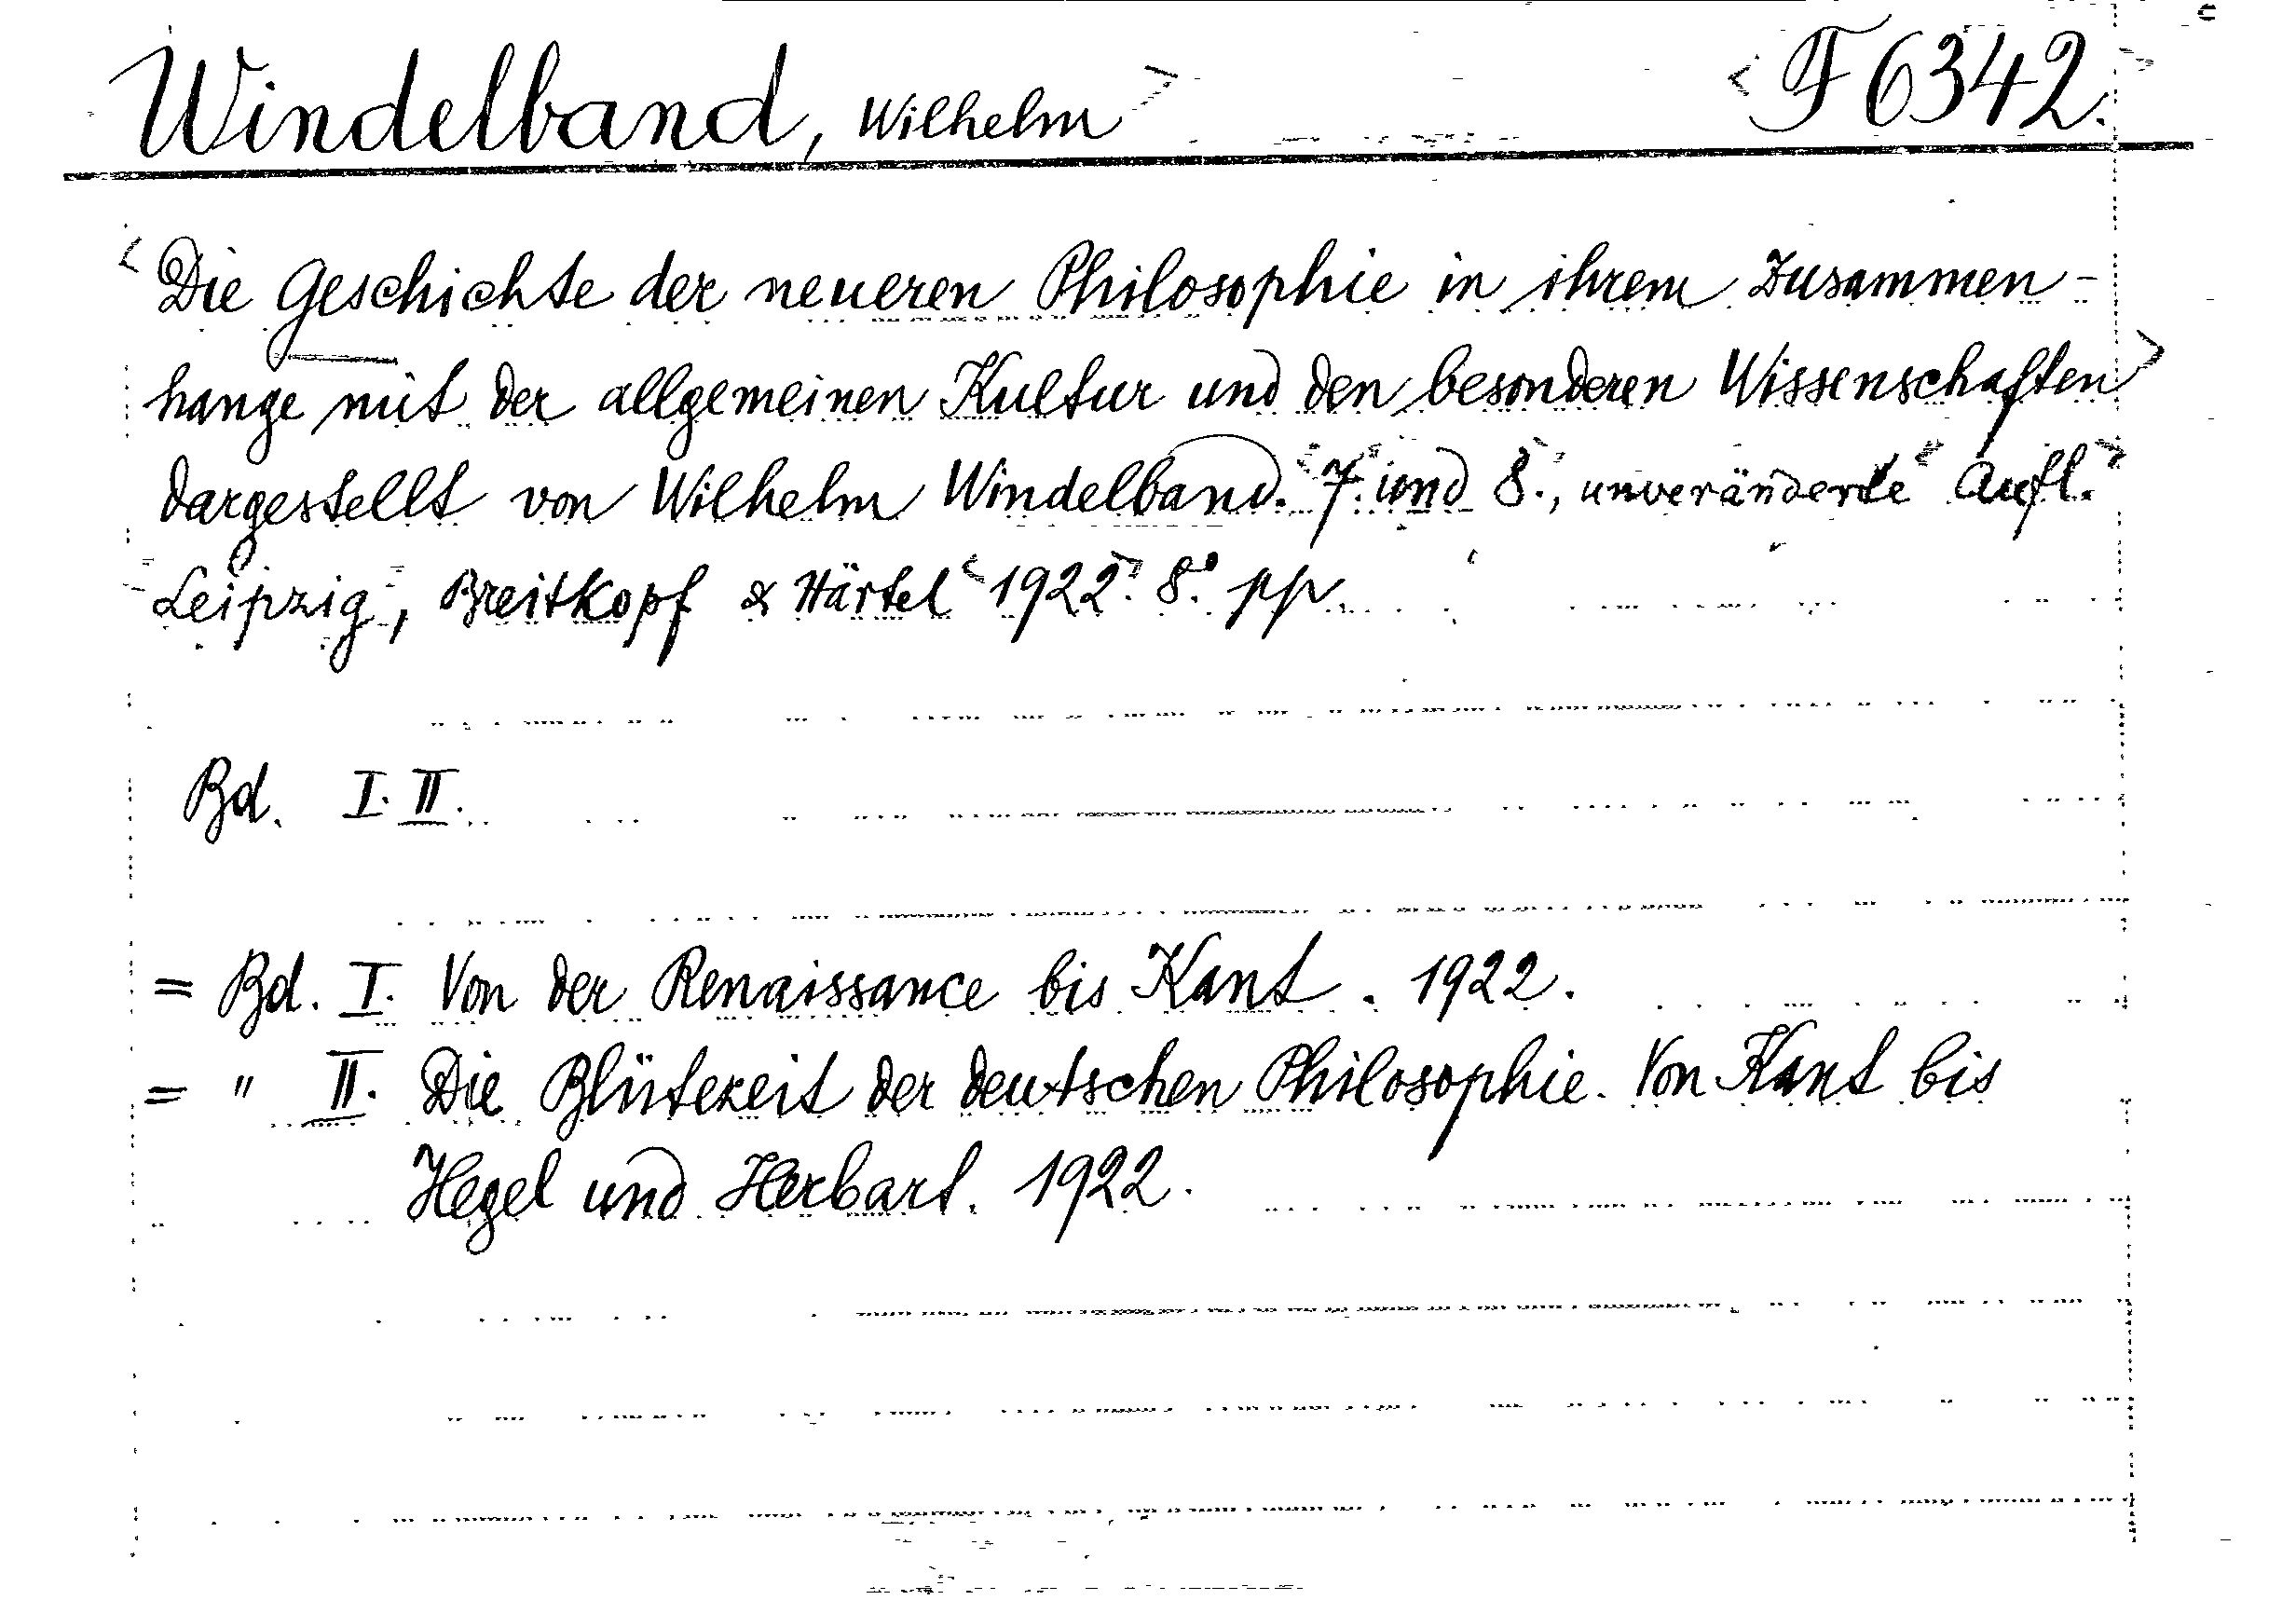 Windelband, Wilhelm> <F 6342.
<Die Geschichte der neueren Philosophie in ihrem Zusammen-
hange mit der allgemeinen Kultur und den besonderen Wissenschaften>
dargestellt von Wilhelm Windelband. <7.> und <8.>, unveränderte <Aufl.>
Leipzig, Breitkopf & Härtel <1922>. 8.° pp.
Bd. I. II.
= Bd. I. Von der Renaissance bis Kant. 1922.
= " II. Die Blütezeit der deutschen Philosophie. Von Kant bis
Hegel und Herbart. 1922.